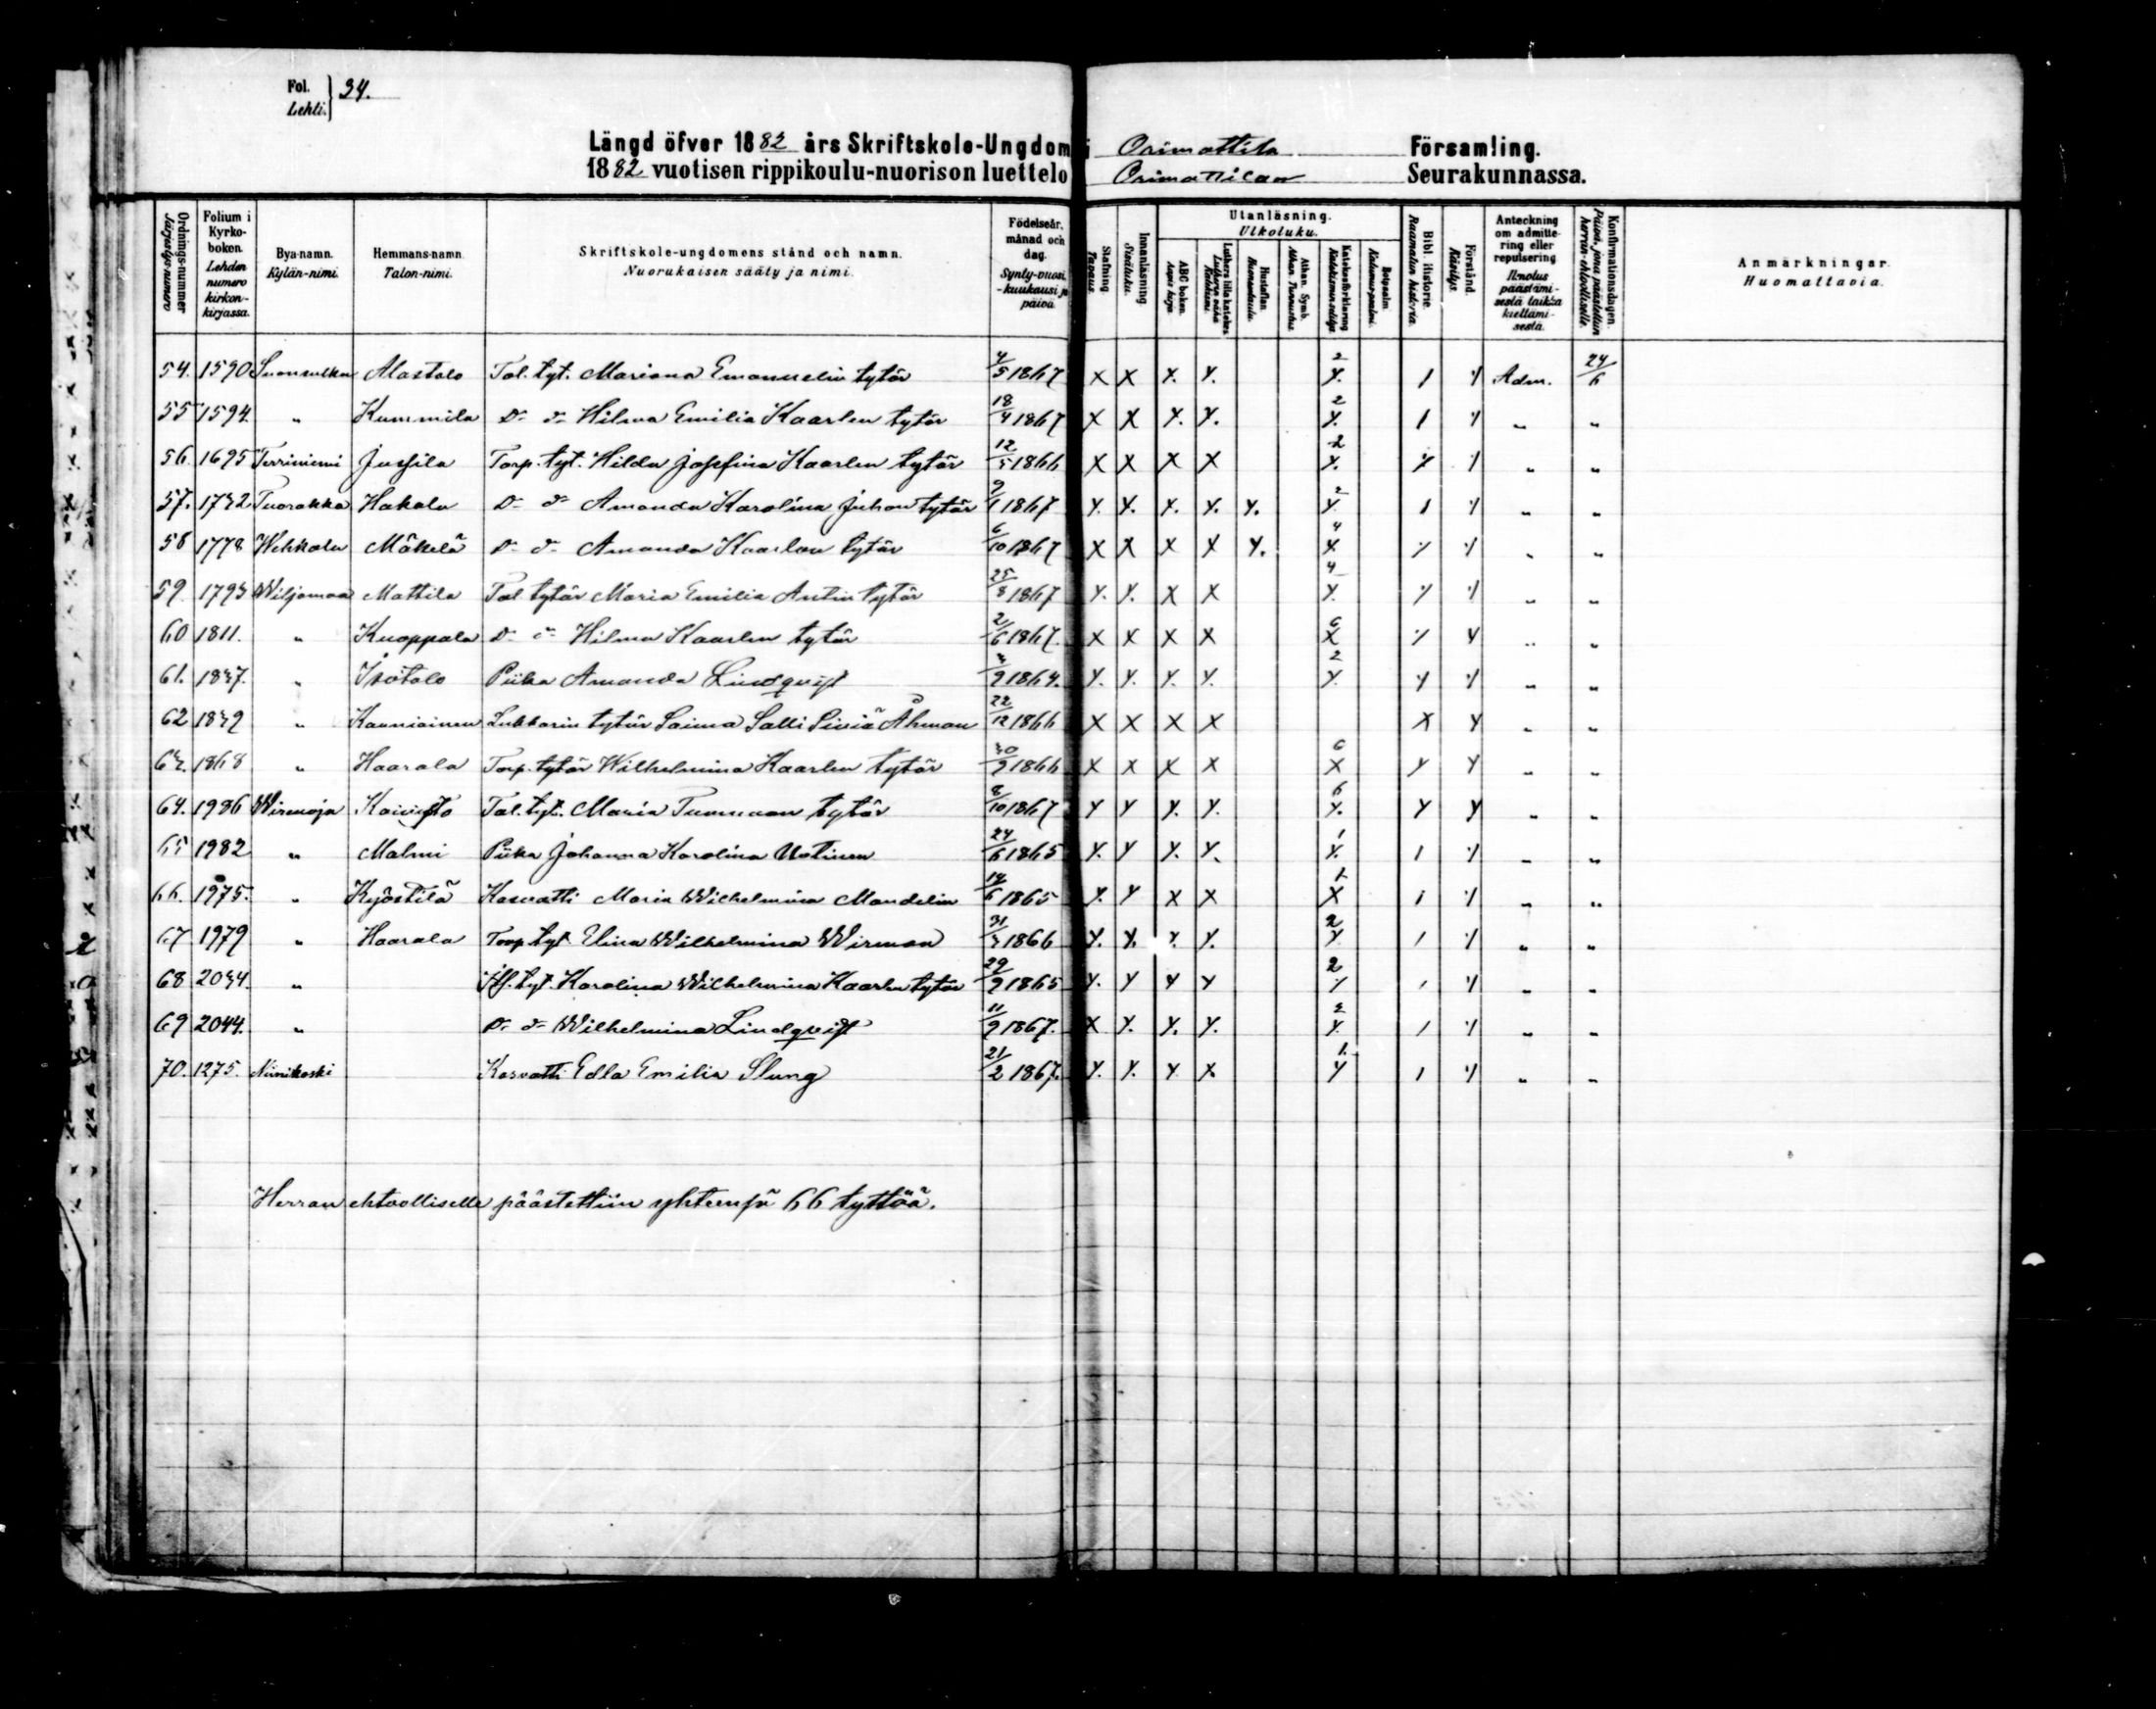 Fol. Lehti. } 34.
Längd öfver 1882 års Skriftskole-Ungdom i Orimattila Församling.
1882 vuotisen rippikoulu-nuorison luettelo Orimattilan Seurakunnassa.
Ordnings-nummer Järjestys-numero | Folium i Kyrko-boken. Lehden numero kirkon-kirjassa. | Bya-namn. Kylän-nimi. | Hemmans-namn. Talon-nimi. | Skriftskole-ungdomens stånd och namn. Nuorukaisen sääty ja nimi. | Födelseår, månad och dag. Synty-vuosi, -kuukausi ja päivä. | Stafning. Tavaus. | Innanläsning. Sisäluku. | Utanläsning. Ulkoluku. | ABC boken. Aapis kirja. | Luthers lilla katekes. Lutherin vähä Katekismi. | Hustaflan. Huoneentaulu. | Athan. Symb. Athan. Tunnustus. | Katekesförklaring. Katekismin selitys. | Botpsalm. Katumus-psalmi. | Bibl. Historie. Raamatun historia. | Förstånd. Käsitys. | Anteckning om admitte-ring eller repulsering. Ilmotus päästämi-sestä taikka kieltämi-sestä. | Konfirmationsdagen. Päivä, jona päästettiin herran-ehtoolliselle. | Anmärkningar. Huomattavia.
54. 1590 Suonsulku Alastalo Tal. tyt. Mariana Emanuelin tytär 4/5 1867 X X Y. Y. 2 Y. / Y Adm. 24/6
55 1594. " Kummila D:o d:o Hilma Emilia Kaarlen tytär 18/4 1867 X X Y. Y. 2 Y. / Y " "
56. 1695 Terriniemi Jussila Torp. tyt. Hilda Josefina Kaarlen tytär 12/5 1866 X X X X 2 Y. Y Y " "
57. 1732 Tuorakka Hakala D:o d:o Amanda Karolina Juhan tytär 9/1 1867 Y. Y. Y. Y. Y. 2 Y / Y " "
58 1778 Wehkala Mäkelä D:o d:o Amanda Kaarlen tytär 6/10 1867 X X X X Y. 4 X Y Y " "
59. 1793 Wiljamaa Mattila Tal. tytär Maria Emilia Antin tytär 25/8 1867 Y. Y. X X 4 Y. Y Y " "
60 1811. " Kuoppala D:o d:o Hilma Kaarlen tytär 2/6 1867. X X X X 6 X Y Y " "
61. 1837. " Isotalo Piika Amanda Lindqvist 3/9 1864. Y. Y. Y. Y. 2 Y. Y Y " "
62 1839 " Kauniainen Lukkarin tytär Saima Salli Siviä Åhman 22/12 1866 X X X X X Y " "
63. 1868 " Haarala Torp. tytär Wilhelmina Kaarlen tytär 30/9 1866 X X X X 6 X Y Y " "
64. 1986 Wirenoja Koivisto Tal. tyt. Maria Tuomaan tytär 8/10 1867 Y Y Y. Y. 6 Y. Y Y " "
65 1982 " Malmi Piika Johanna Karolina Uotinen 24/6 1865 Y. Y Y. Y. 1 Y. / Y " "
66. 1975. " Kyöstilä Kasvatti Maria Wilhelmina Mandelin 14/6 1865 Y. Y X X 1 X / Y " "
67 1979 " Haarala Torp. tyt. Elina Wilhelmina Wirman 31/3 1866 Y. Y. Y. Y. 2 Y / Y " "
68 2034. " Its. tyt. Karolina Wilhelmina Kaarlen tytär 29/9 1865 Y. Y Y Y 2 Y / Y " "
69 2044. " D:o d:o Wilhelmina Lindqvist 11/9 1867. X Y. Y. Y. 2 Y. / Y " "
70. 1275. Niinikoski Kasvatti Edla Emilia Slung 21/2 1867. Y. Y. Y X 1. Y / Y " "
Herran ehtoolliselle päästettiin yhteensä 66 tyttöä.